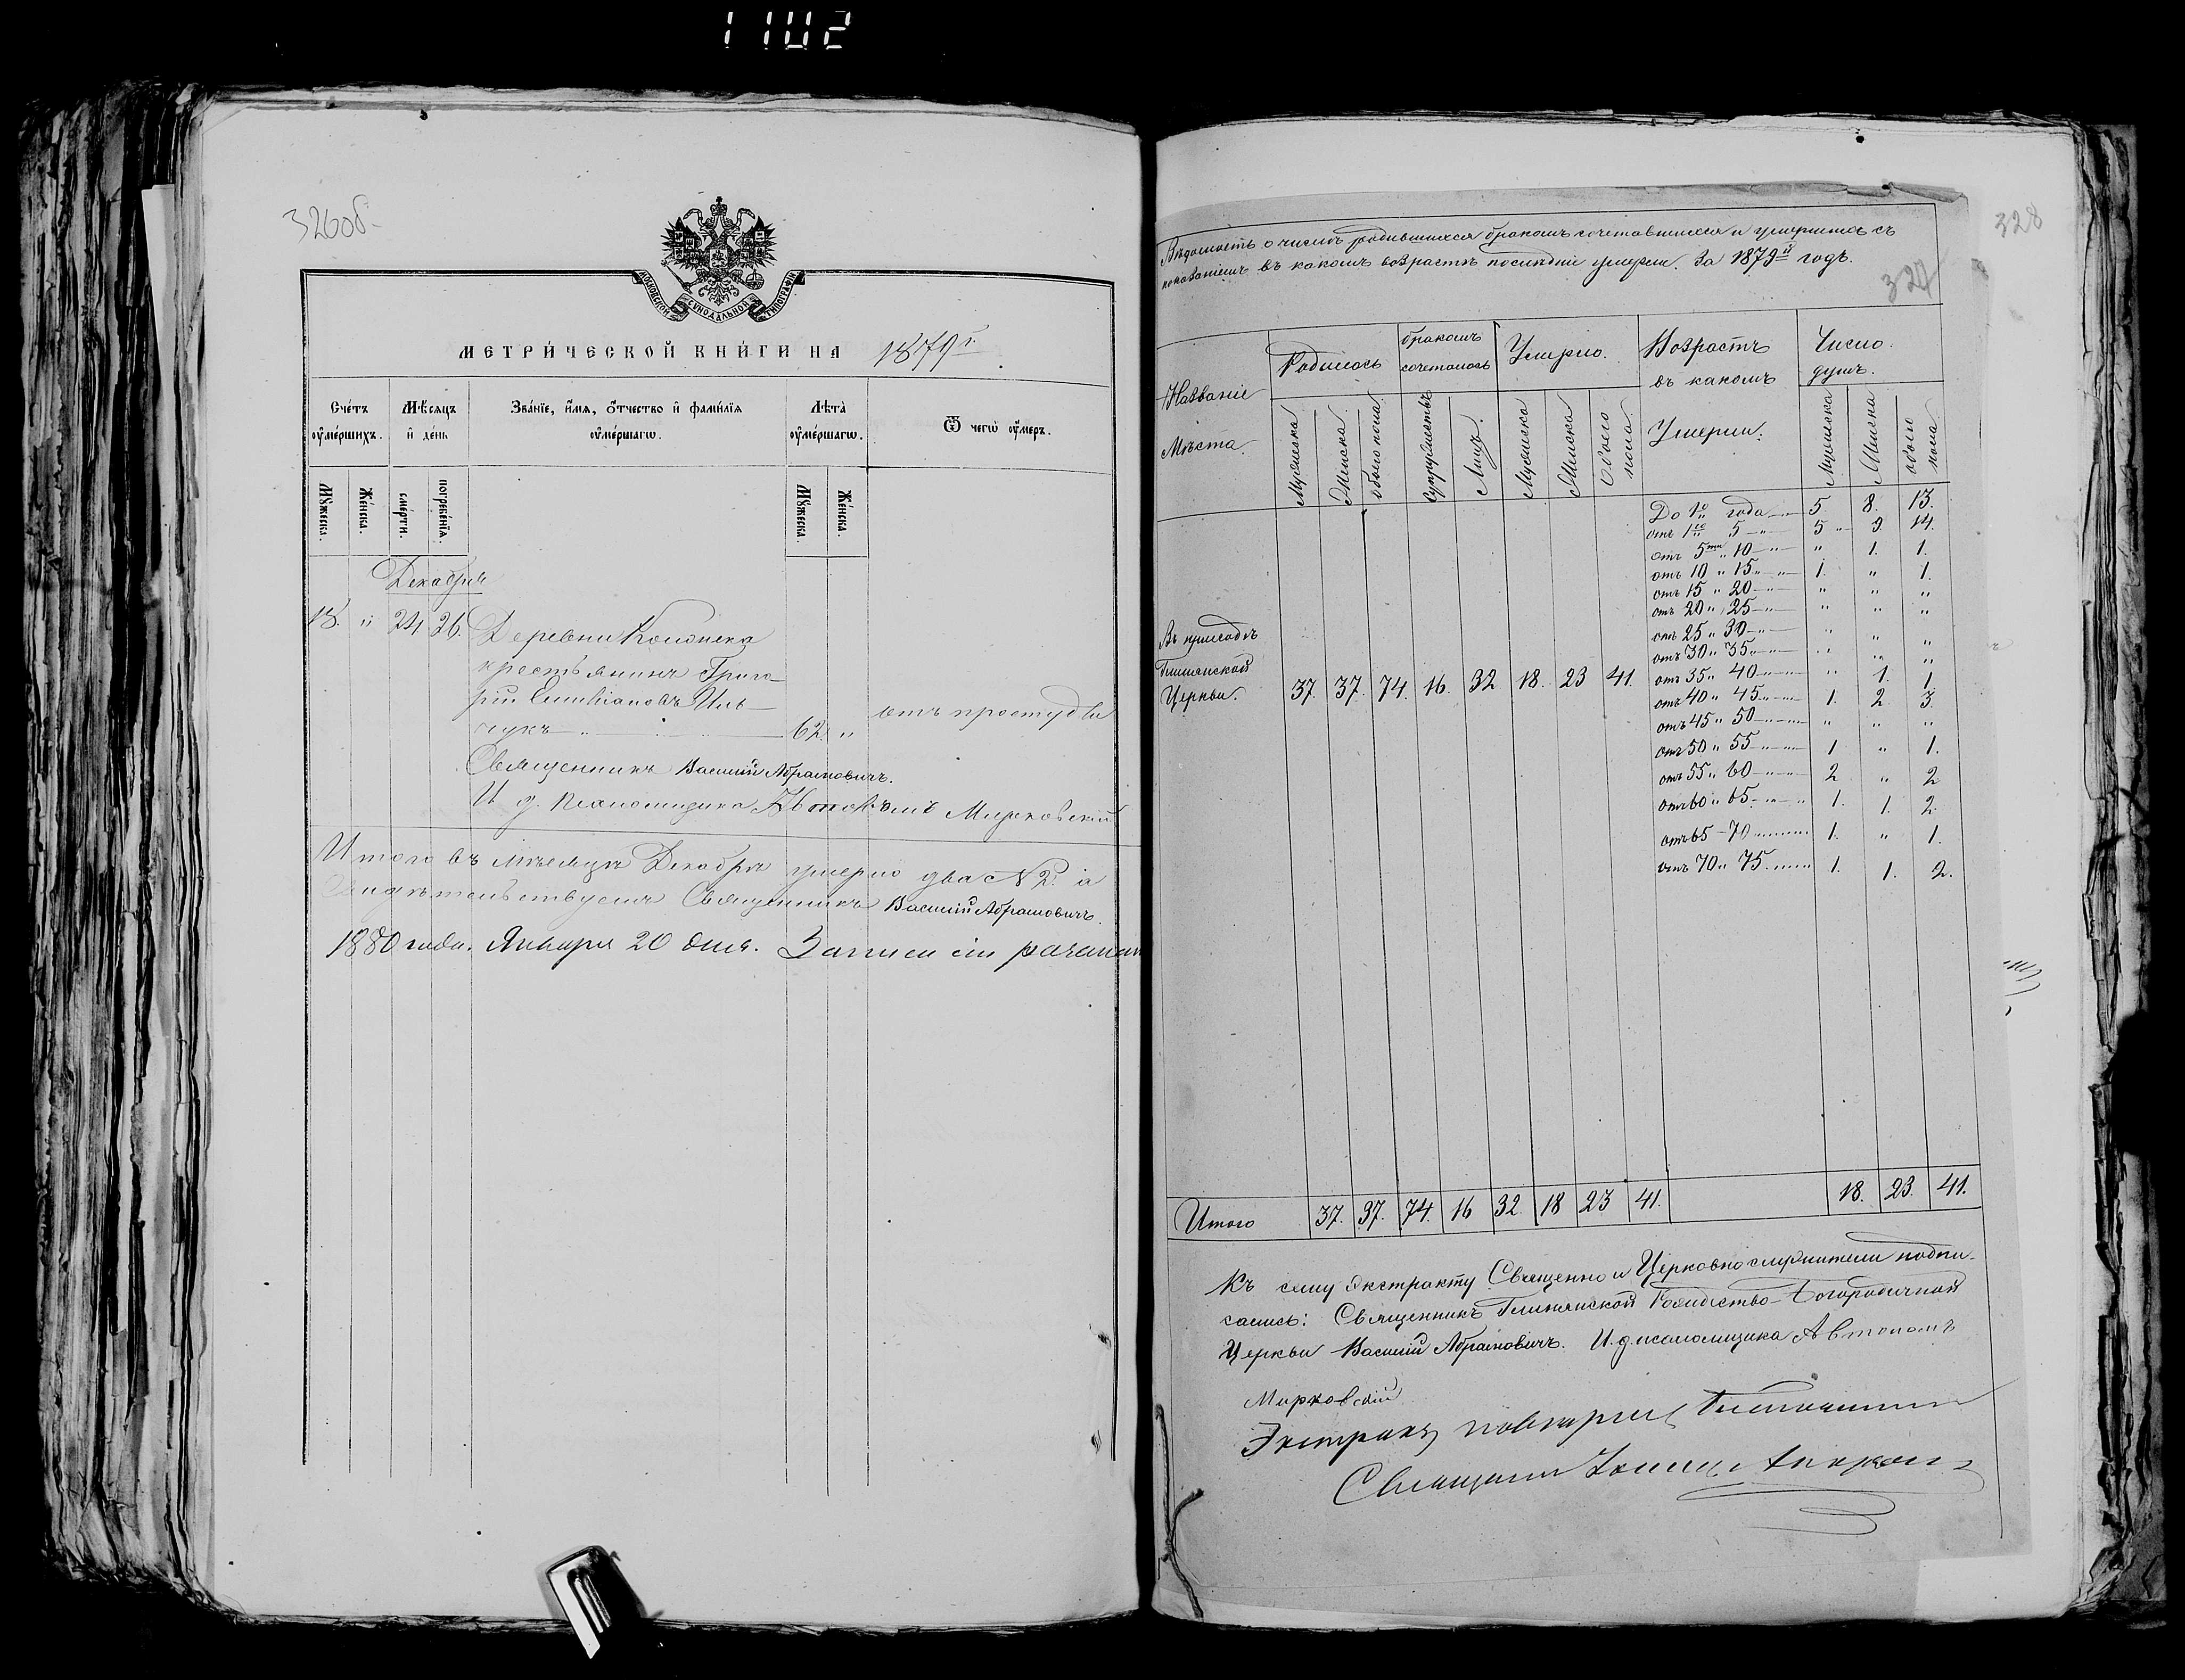 1102
326об.
МОСКОВСКОЙ СУНОДАЛЬНОЙ ТИПОГРАФІИ
МЕТРИ́ЧЕСКОЙ КНИ́ГИ НА 1879 г.
Сче́тъ оу҆ме́ршихъ.
Мѣ́сяцъ и҆ де́нь
Зва́нїе, и҆́мя, ѻ҆́тчество и҆ фами́лїя оу҆ме́ршагѡ.
Лѣта̀ оу҆ме́ршагѡ.
Ѿ чегѡ̀ оу҆́меръ.
Мꙋ́жеска.
Же́нска.
сме́рти.
погребе́нїя.
Мꙋ́жеска.
Же́нска.
Декабрь
18. " 24 26. Деревни Колонска
крестьянинъ Григо-
рій
чукъ 62 " отъ простуды
Священникъ Василій Абрамовичъ.
И. д. псаломщика Автономъ Мирковскій
Итого въ мѣсяцѣ Декабрѣ умерло два № 2. и
Свидѣтельствуемъ Священникъ Василій Абрамовичъ.
1880 года. Января 20 дня. Записи сіи
328
327
Вѣдомость о числѣ родившихся бракомъ сочетавшихся и умершихъ съ
показаніемъ въ какомъ возрастѣ послѣдніе умерли. За 1879й годъ.
Названіе Мѣста.
Родилось
бракомъ сочеталось
Умерло.
Возрастъ въ какомъ Умерли:
Число душъ.
Мужеска
Женска.
обоего пола.
Супружествъ
Лицъ.
Мужеска
Женска
Обоего пола.
Мужеска
Женска
обоего пола
До 1го года 5 8. 13.
отъ 1го 5 5 9. 14.
отъ 5ти " 10 " 1. 1.
отъ 10 " 15 1. " 1.
отъ 15 " 20 " " "
отъ 20 " 25 " " "
отъ 25 " 30 " " "
отъ 30 " 35 " " "
отъ 35 " 40 " 1. 1.
отъ 40 " 45 1. 2. 3.
отъ 45 " 50 " " "
отъ 50 " 55 1 " 1.
отъ 55 " 60 2 " 2
отъ 60 " 65 1. 1. 2.
отъ 65 - 70 1. " 1.
отъ 70 " 75 1. 1. 2.
Въ приходѣ
Глинянской
Церкви. 37. 37. 74. 16. 32 18. 23 41.
Итого 37. 37. 74. 16 32. 18 23 41. 18. 23. 41.
Къ сему Экстракту Священно и Церковнослужители подпи-
сались: Священникъ Глинянской Рождество-Богородичной
Церкви Василій Абрамовичъ. И. д. псаломщика Автономъ
Мирковскій